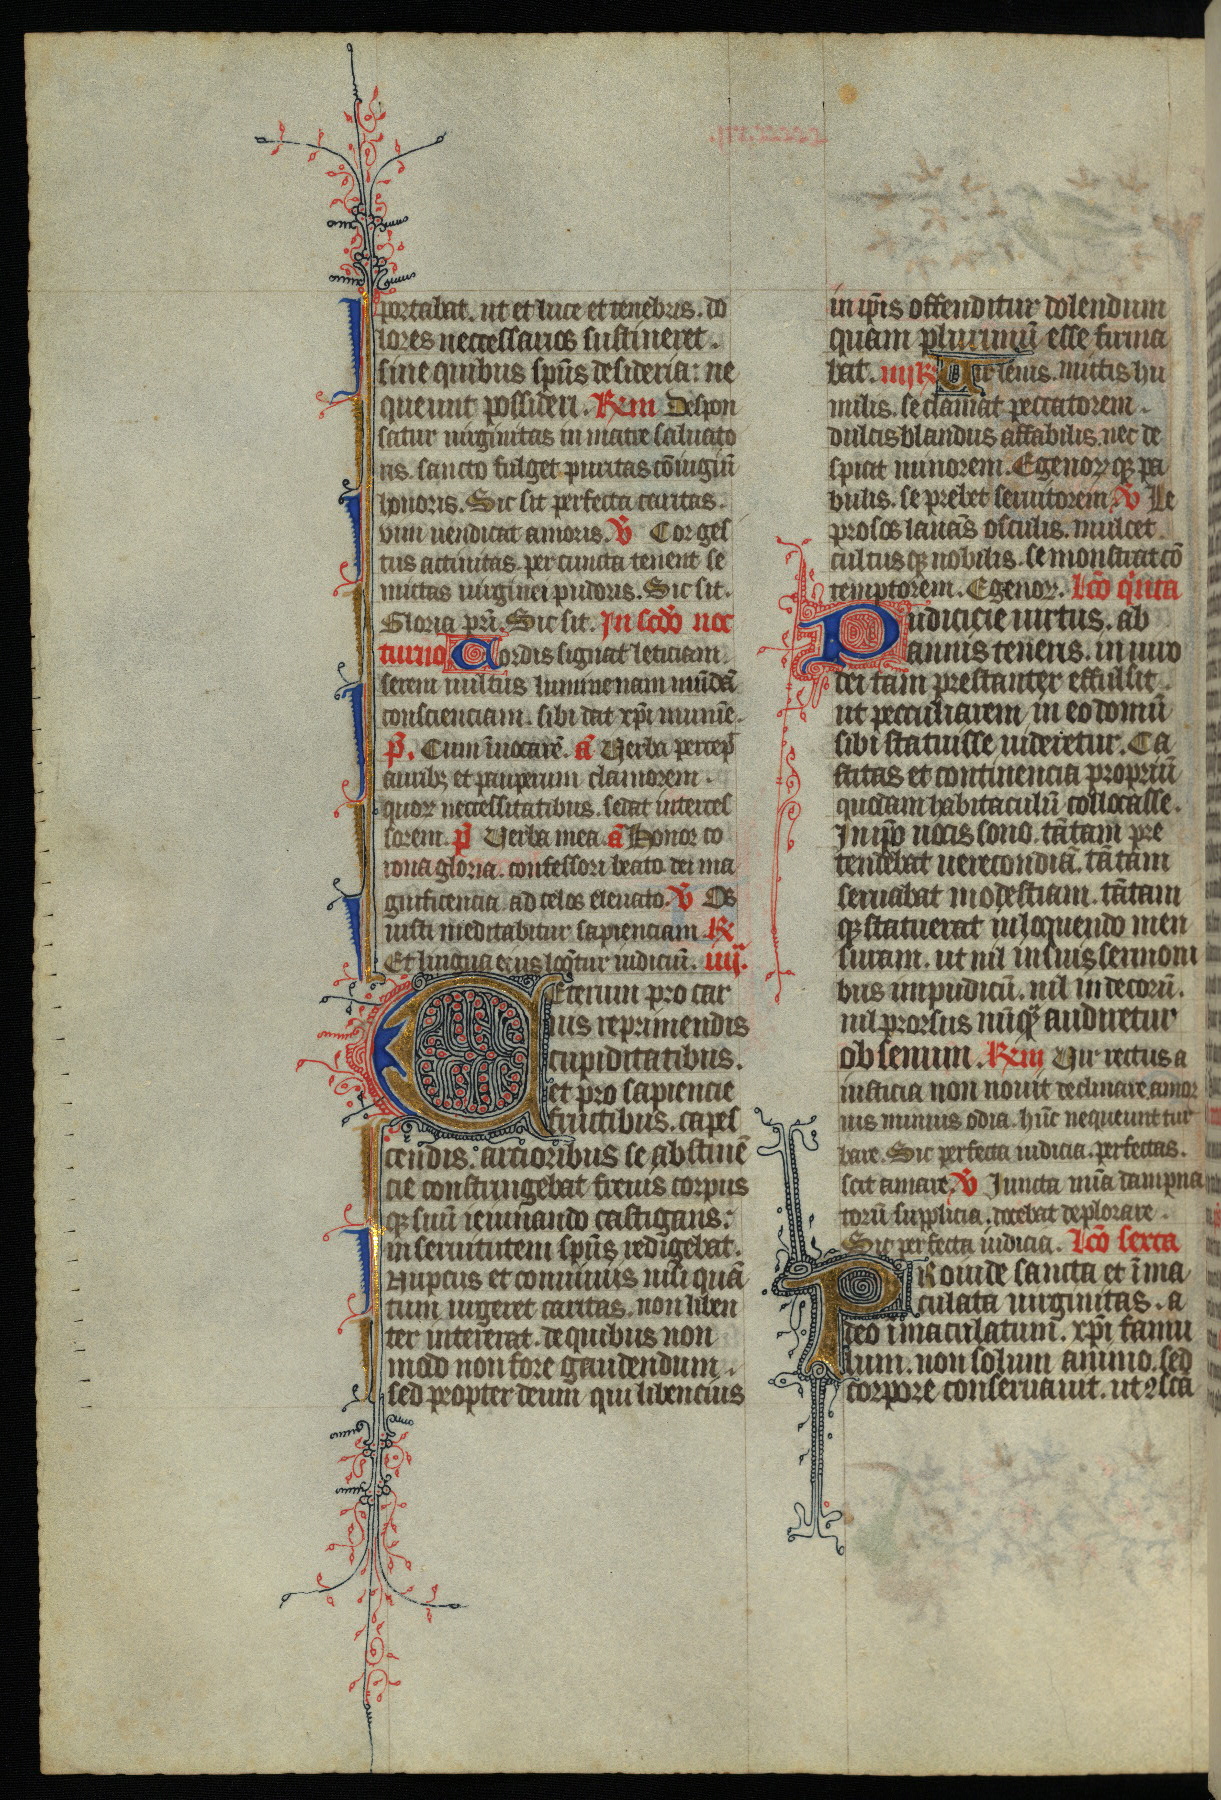 portabat. ut et luce et tenebris. do
lores neccessarios sustineret.
sine quibus sp̄us desideria: ne
queunt possideri. R̄m iii Despon
satur uirginitas in matre saluato
ris. sancto fulget puritas cōiugiū
honoris. Sic sit perfecta caritas.
uim uendicat amoris. V̄ Cor ges
tus actiuitas. per cuncta tenent se
mitas uirginei pudoris. Sic sit.
Gloria pri. Sic sit. In scdō noc
turno Cordis signat leticiam
sereni uultus lumine nam mūdā
conscienciam. sibi dat xp̄i munīe.
p̄. Cum īuocarē. ā Uerba percep̄
auribꝫ et pauperum clamorem.
quoꝝ neccessitatibus. sedat interces
sorem. p̄ Uerba mea. ā Honor co
rona gloria. confessori beato. dei ma
gnificencia ad celos eleuato. V̄ Os
iusti meditabitur sapienciam. R̄
Et lingua eius loq̄tur iudiciū. iiij.
Eterum pro car
nis reprimendis
cupiditatibus.
et pro sapiencie
fructibus. capes
cendis: artioribus se abstinē
cie constringebat frenis corpus
qꝫ suū ieiunando castigans:
in seruitutem sp̄us redigebat.
Nupciis et conuiuiis nisi quā
tum urgeret caritas. non liben
ter intererat. de quibus non
modo non fore gaudendum.
sed propter deum qui libencius
in ip̄is offenditur dolendum
quam plurimū esse firma
bat. iiij R̄ Uir lenis. mitis hu
milis. se clamat peccatorem.
dulcis blandus affabilis. nec de
spicit minorem. Egenoꝝ qꝫ pa
bulis. se prebet seruitorem. V̄ Le
prosos lauās osculis. mulcet
cultus qꝫ nobilis. se monstrat cō
temptorem. Egenoꝝ. Lcō qinta
Pudicicie uirtus. ab
annis teneris. in uiro
dei tam prestanter effulsit
ut peculiarem in eo domū
sibi statuisse uideretur. Ca
stitas et continencia propriū
quodam habitaculū collocasse.
In ip̄o uocis sono. tātam pre
tendebat uerecondiā. tātam
seruabat modestiam. tātam
qꝫ statuerat in loquendo men
suram. ut nil in suis sermoni
bus impudicū. nil indecorū.
nil prorsus nūqꝫ audiretur
obsenum. R̄m iii Uir rectus a
iusticia non nouit declinare. amor
nis minus odia. hūc nequeunt tur
bare. Sic perfecta iudicia. perfectas.
scit amare. V̄ Iuncta mīa dampna
torū supplicia. docebat deplorare.
Sic perfecta iudicia. Lcō sexta
PRoinde sancta et īma
culata uirginitas. a
deo īmaculatum. xp̄i famu
lum. non solum animo. sed
corpore conseruauit. ut ꝯsca